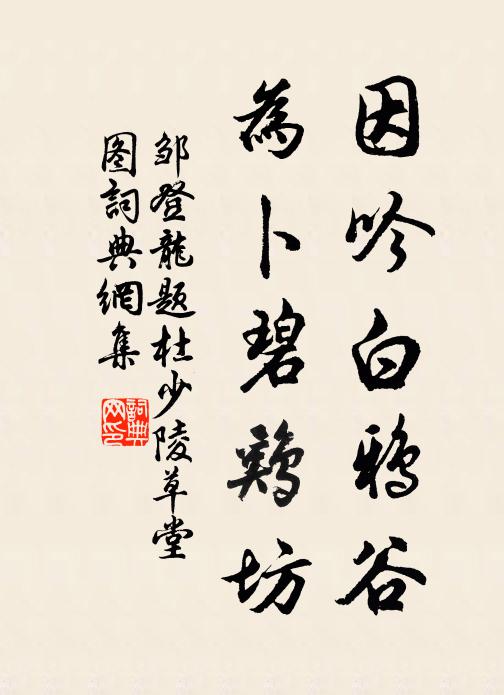 因吟白鴉谷
為卜碧鷄坊
邹登龍题杜少陵草堂
图詞典網集
詞典网印